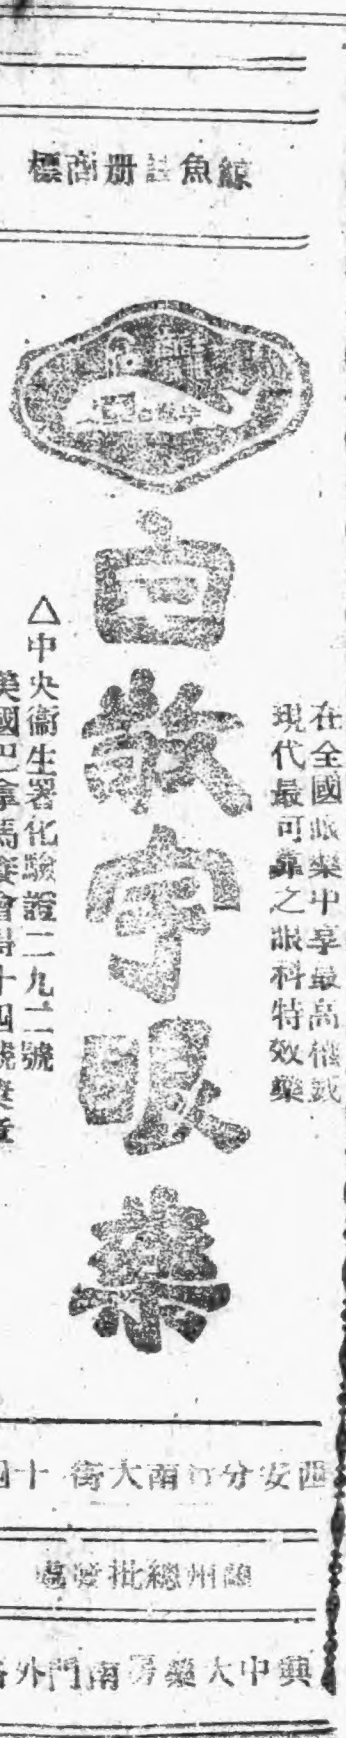 鯨魚註册商標
在全國眼藥中享最高權威
現代最可靠之眼科特效藥
白敬宇眼藥
△中央衞生署化驗證二九二號
美國巴拿馬賽會得十四號獎章
西安分行南大街十四
總批發處
興中大藥房南門外